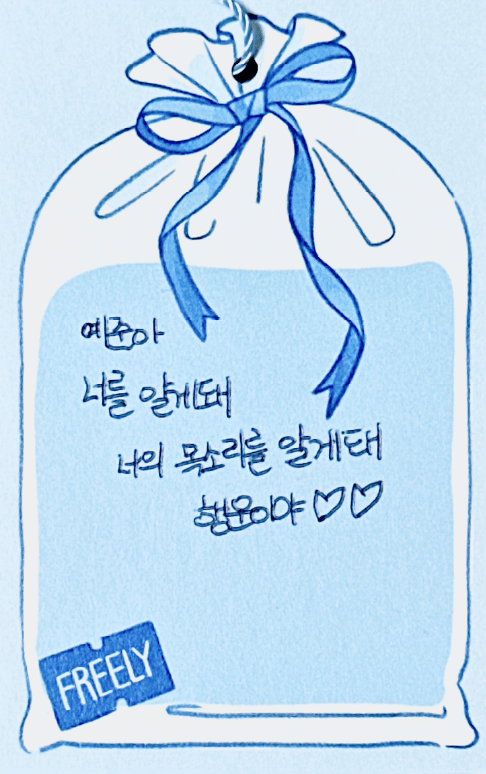 예준아
너를 알게돼
너의 목소리를 알게돼
행운이야 ♡♡
FREELY